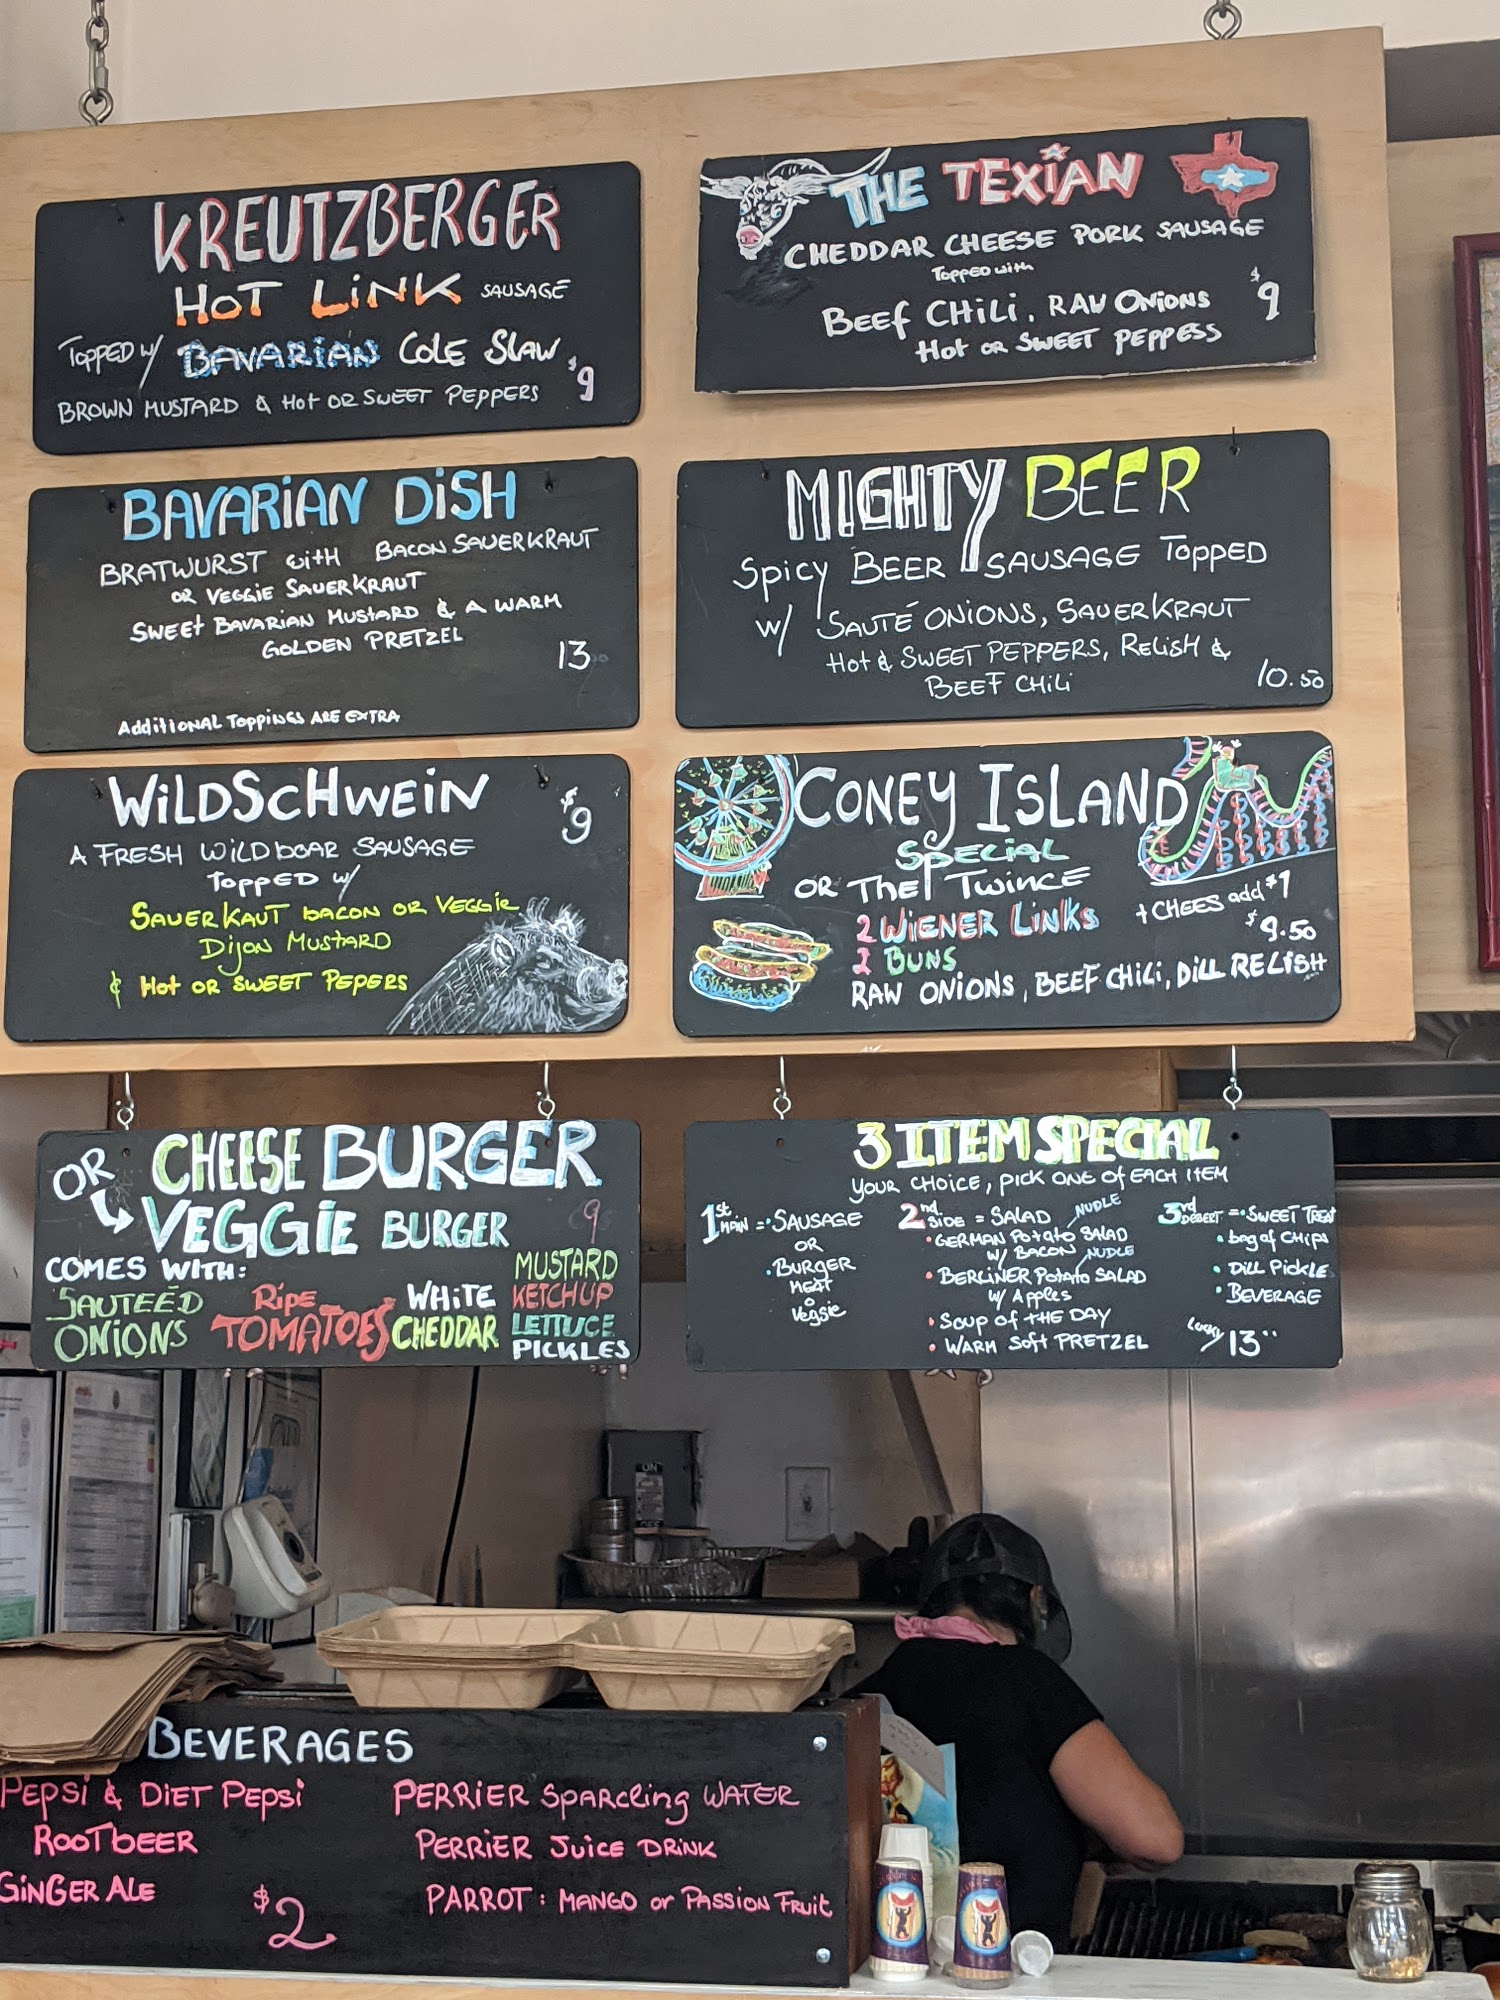 KREUTZBERGER
HOT LINK SAUSAGE
TOPPED W/ BAVARIAN COLE SLAW
BROWN MUSTARD & HOT OR SWEET PEPPERS
$9
THE TEXIAN
CHEDDAR CHEESE PORK SAUSAGE
TOPPED WITH
BEEF CHILI, RAW ONIONS
HOT OR SWEET PEPPESS
$9
BAVARIAN DISH
BRATWURST WITH BACON SAUERKRAUT
OR VEGGIE SAUERKRAUT
SWEET BAVARIAN MUSTARD & A WARM
GOLDEN PRETZEL
13
ADDITIONAL TOPPINGS ARE EXTRA
MIGHTY BEER
SPICY BEER SAUSAGE TOPPED
W/ SAUTÉ ONIONS, SAUERKRAUT
HOT & SWEET PEPPERS, RELISH &
BEEF CHILI
10.50
WILDSCHWEIN
$9
A FRESH WILDBOAR SAUSAGE
TOPPED W/
SAUERKAUT BACON OR VEGGIE
DIJON MUSTARD
& HOT OR SWEET PEPERS
CONEY ISLAND
SPECIAL
OR THE TWINCE
2 WIENER LINKS
2 BUNS
RAW ONIONS, BEEF CHILI, DILL RELISH
+ CHEES add $1
$9.50
OR CHEESE BURGER
VEGGIE BURGER
9
COMES WITH:
SAUTEED
ONIONS
RIPE
TOMATOES
WHITE
CHEDDAR
MUSTARD
KETCHUP
LETTUCE
PICKLES
3 ITEM SPECIAL
YOUR CHOICE, PICK ONE OF EACH ITEM
1st MAIN = • SAUSAGE
OR
• BURGER
MEAT
O
Veggie
2nd SIDE = SALAD NUDLE
• GERMAN POTATO SALAD
W/ BACON NUDLE
• BERLINER POTATO SALAD
W/ APPLES
• SOUP OF THE DAY
• WARM SOFT PRETZEL
3rd DESERT = • SWEET TREAT
• bag of CHIPS
• DILL PICKLE
• BEVERAGE
LUCKY 13
ON
BEVERAGES
PEPSI & DIET PEPSI
ROOTBEER
GINGER ALE
$2
PERRIER SPARCLING WATER
PERRIER JUICE DRINK
PARROT: MANGO or PASSION FRUIT